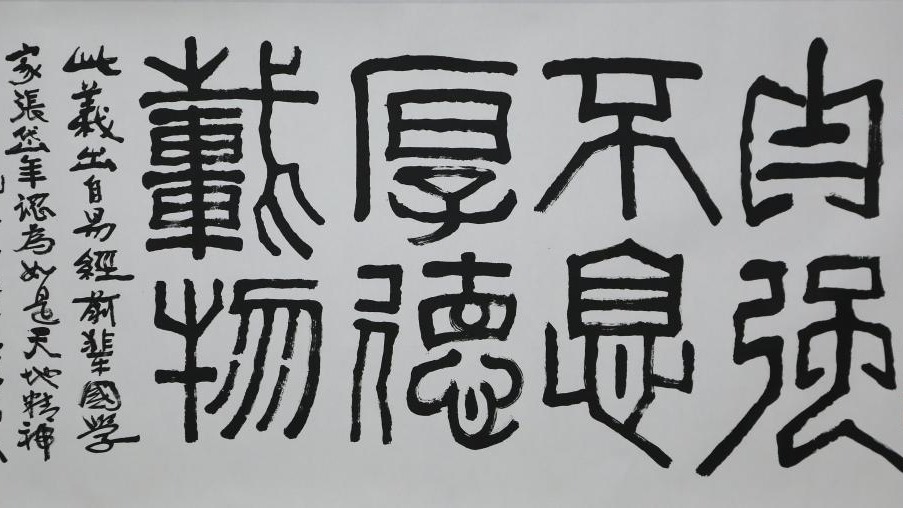 自强
不息
厚德
載物
此義出自易經前輩國学
家張岱年認為如是天地精神